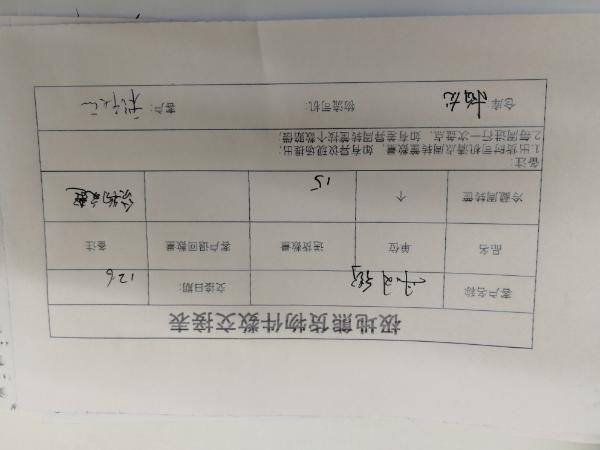 极地熊货物件数交接表
客户名称 交接日期: 126
品名 单位 送货数量 客户退回数量 备注
冷藏周转筐 个 15
备注:
1.出货时司机清点周转筐数量,如有异议现场提出;
2.每周进行一次盘点,如有差异周转筐按个数赔偿;
仓库: 物流司机: 客户: